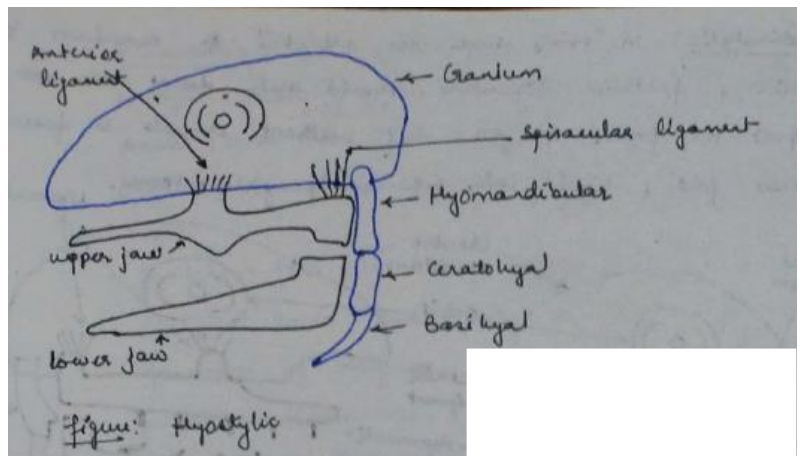 Anterior
ligament
Cranium
Spiracular ligament
Hyomandibular
upper jaw
Ceratohyal
Basihyal
lower jaw
Figure: Hyostylic